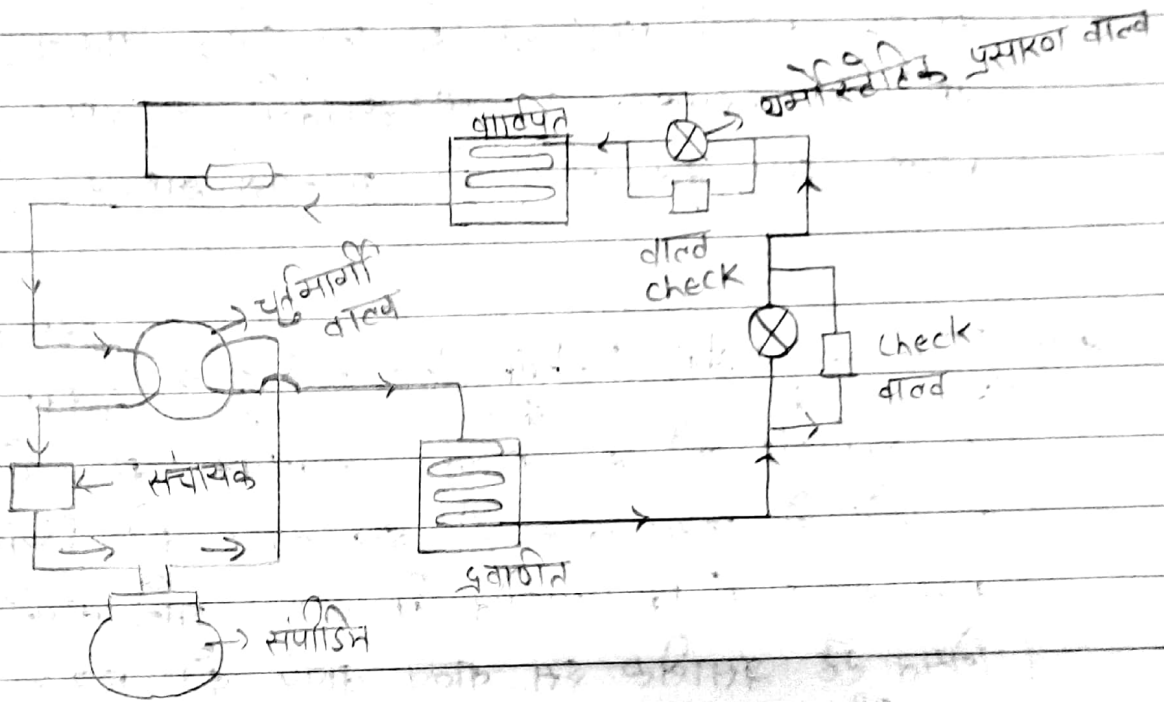 थर्मोस्टेटिक प्रसारण वाल्व
वाष्पित
वाल्व
check
चर्तुमार्गी
वाल्व
check
वाल्व
संचायक
द्रवणित
संपीडित